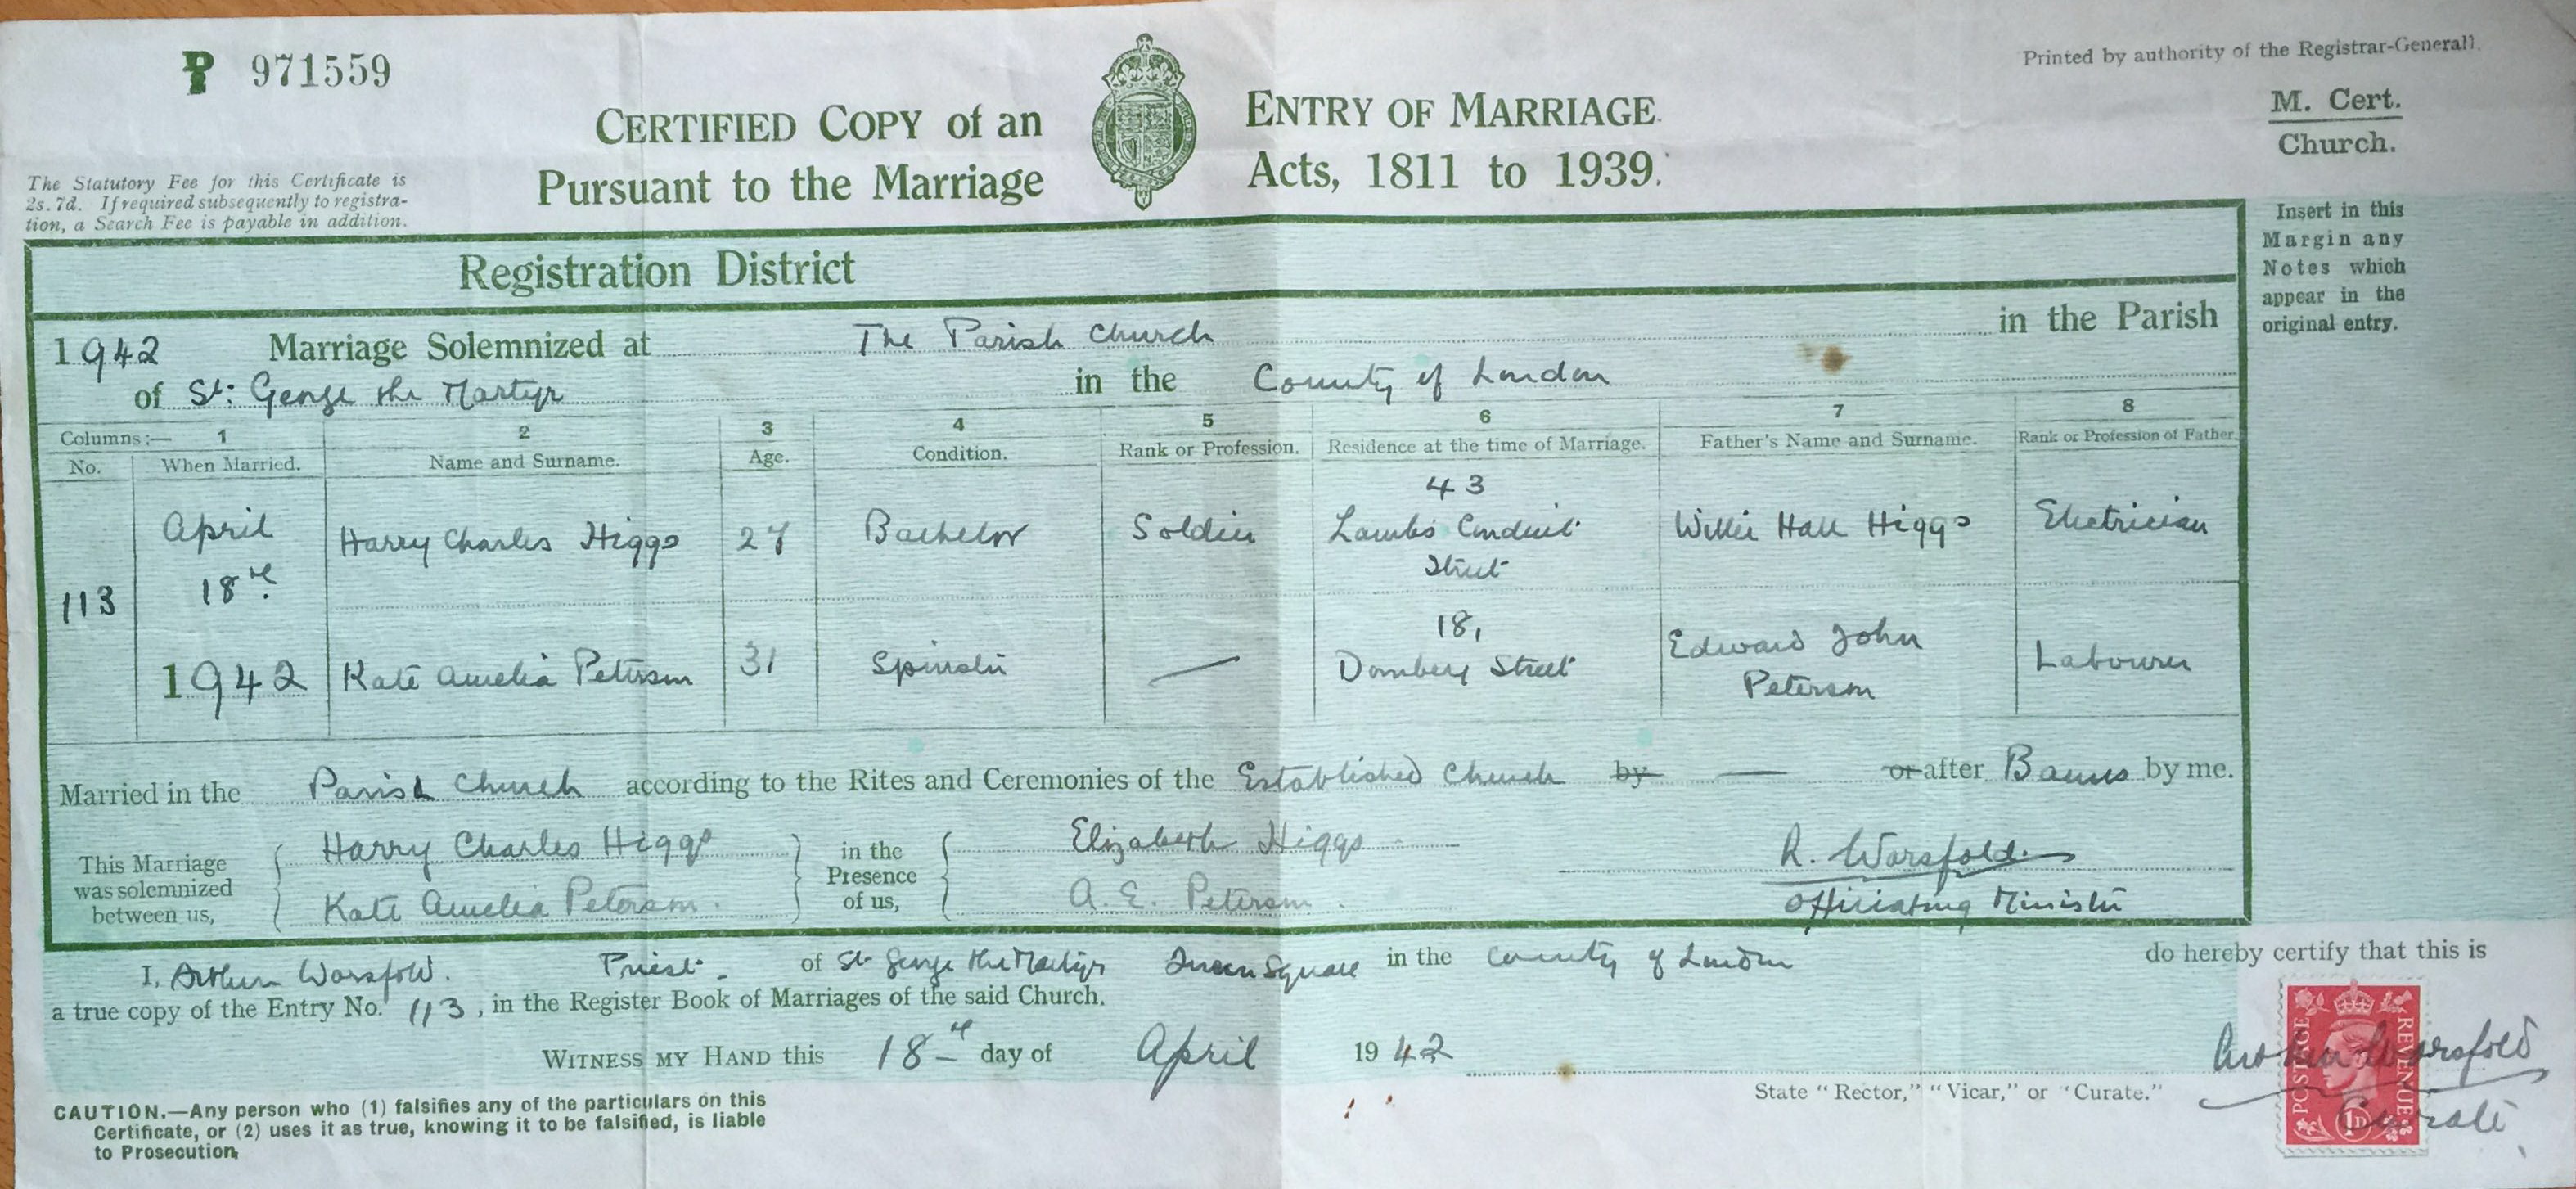 P 971559
Printed by authority of the Registrar-General.
CERTIFIED COPY of an ENTRY OF MARRIAGE.
Pursuant to the Marriage Acts, 1811 to 1939.
M. Cert.
Church.
The Statutory Fee for this Certificate is
2s. 7d. If required subsequently to registra-
tion, a Search Fee is payable in addition.
Insert in this
Margin any
Notes which
appear in the
original entry.
Registration District
1942 Marriage Solemnized at The Parish Church in the Parish
of St: George the Martyr in the County of London
Columns:— 1 2 3 4 5 6 7 8
No. When Married. Name and Surname. Age. Condition. Rank or Profession. Residence at the time of Marriage. Father's Name and Surname. Rank or Profession of Father.
113 April 18th 1942
Harry Charles Higgs 27 Bachelor Soldier 43 Lambs Conduit Street Willie Hall Higgs Electrician
Kate Amelia Peterson 31 Spinster — 18, Dombey Street Edward John Peterson Labourer
Married in the Parish Church according to the Rites and Ceremonies of the Established Church by — or after Banns by me.
This Marriage
was solemnized
between us,
Harry Charles Higgs
Kate Amelia Peterson.
in the
Presence
of us,
Elizabeth Higgs
A. E. Peterson.
R. Worsfold.
Officiating Minister
I, Arthur Worsfold. Priest. of St George the Martyr Queen Square in the County of London do hereby certify that this is
a true copy of the Entry No. 113, in the Register Book of Marriages of the said Church.
WITNESS MY HAND this 18th day of April 1942
Arthur Worsfold
Curate
State "Rector," "Vicar," or "Curate."
POSTAGE REVENUE
1D
CAUTION.—Any person who (1) falsifies any of the particulars on this
Certificate, or (2) uses it as true, knowing it to be falsified, is liable
to Prosecution.